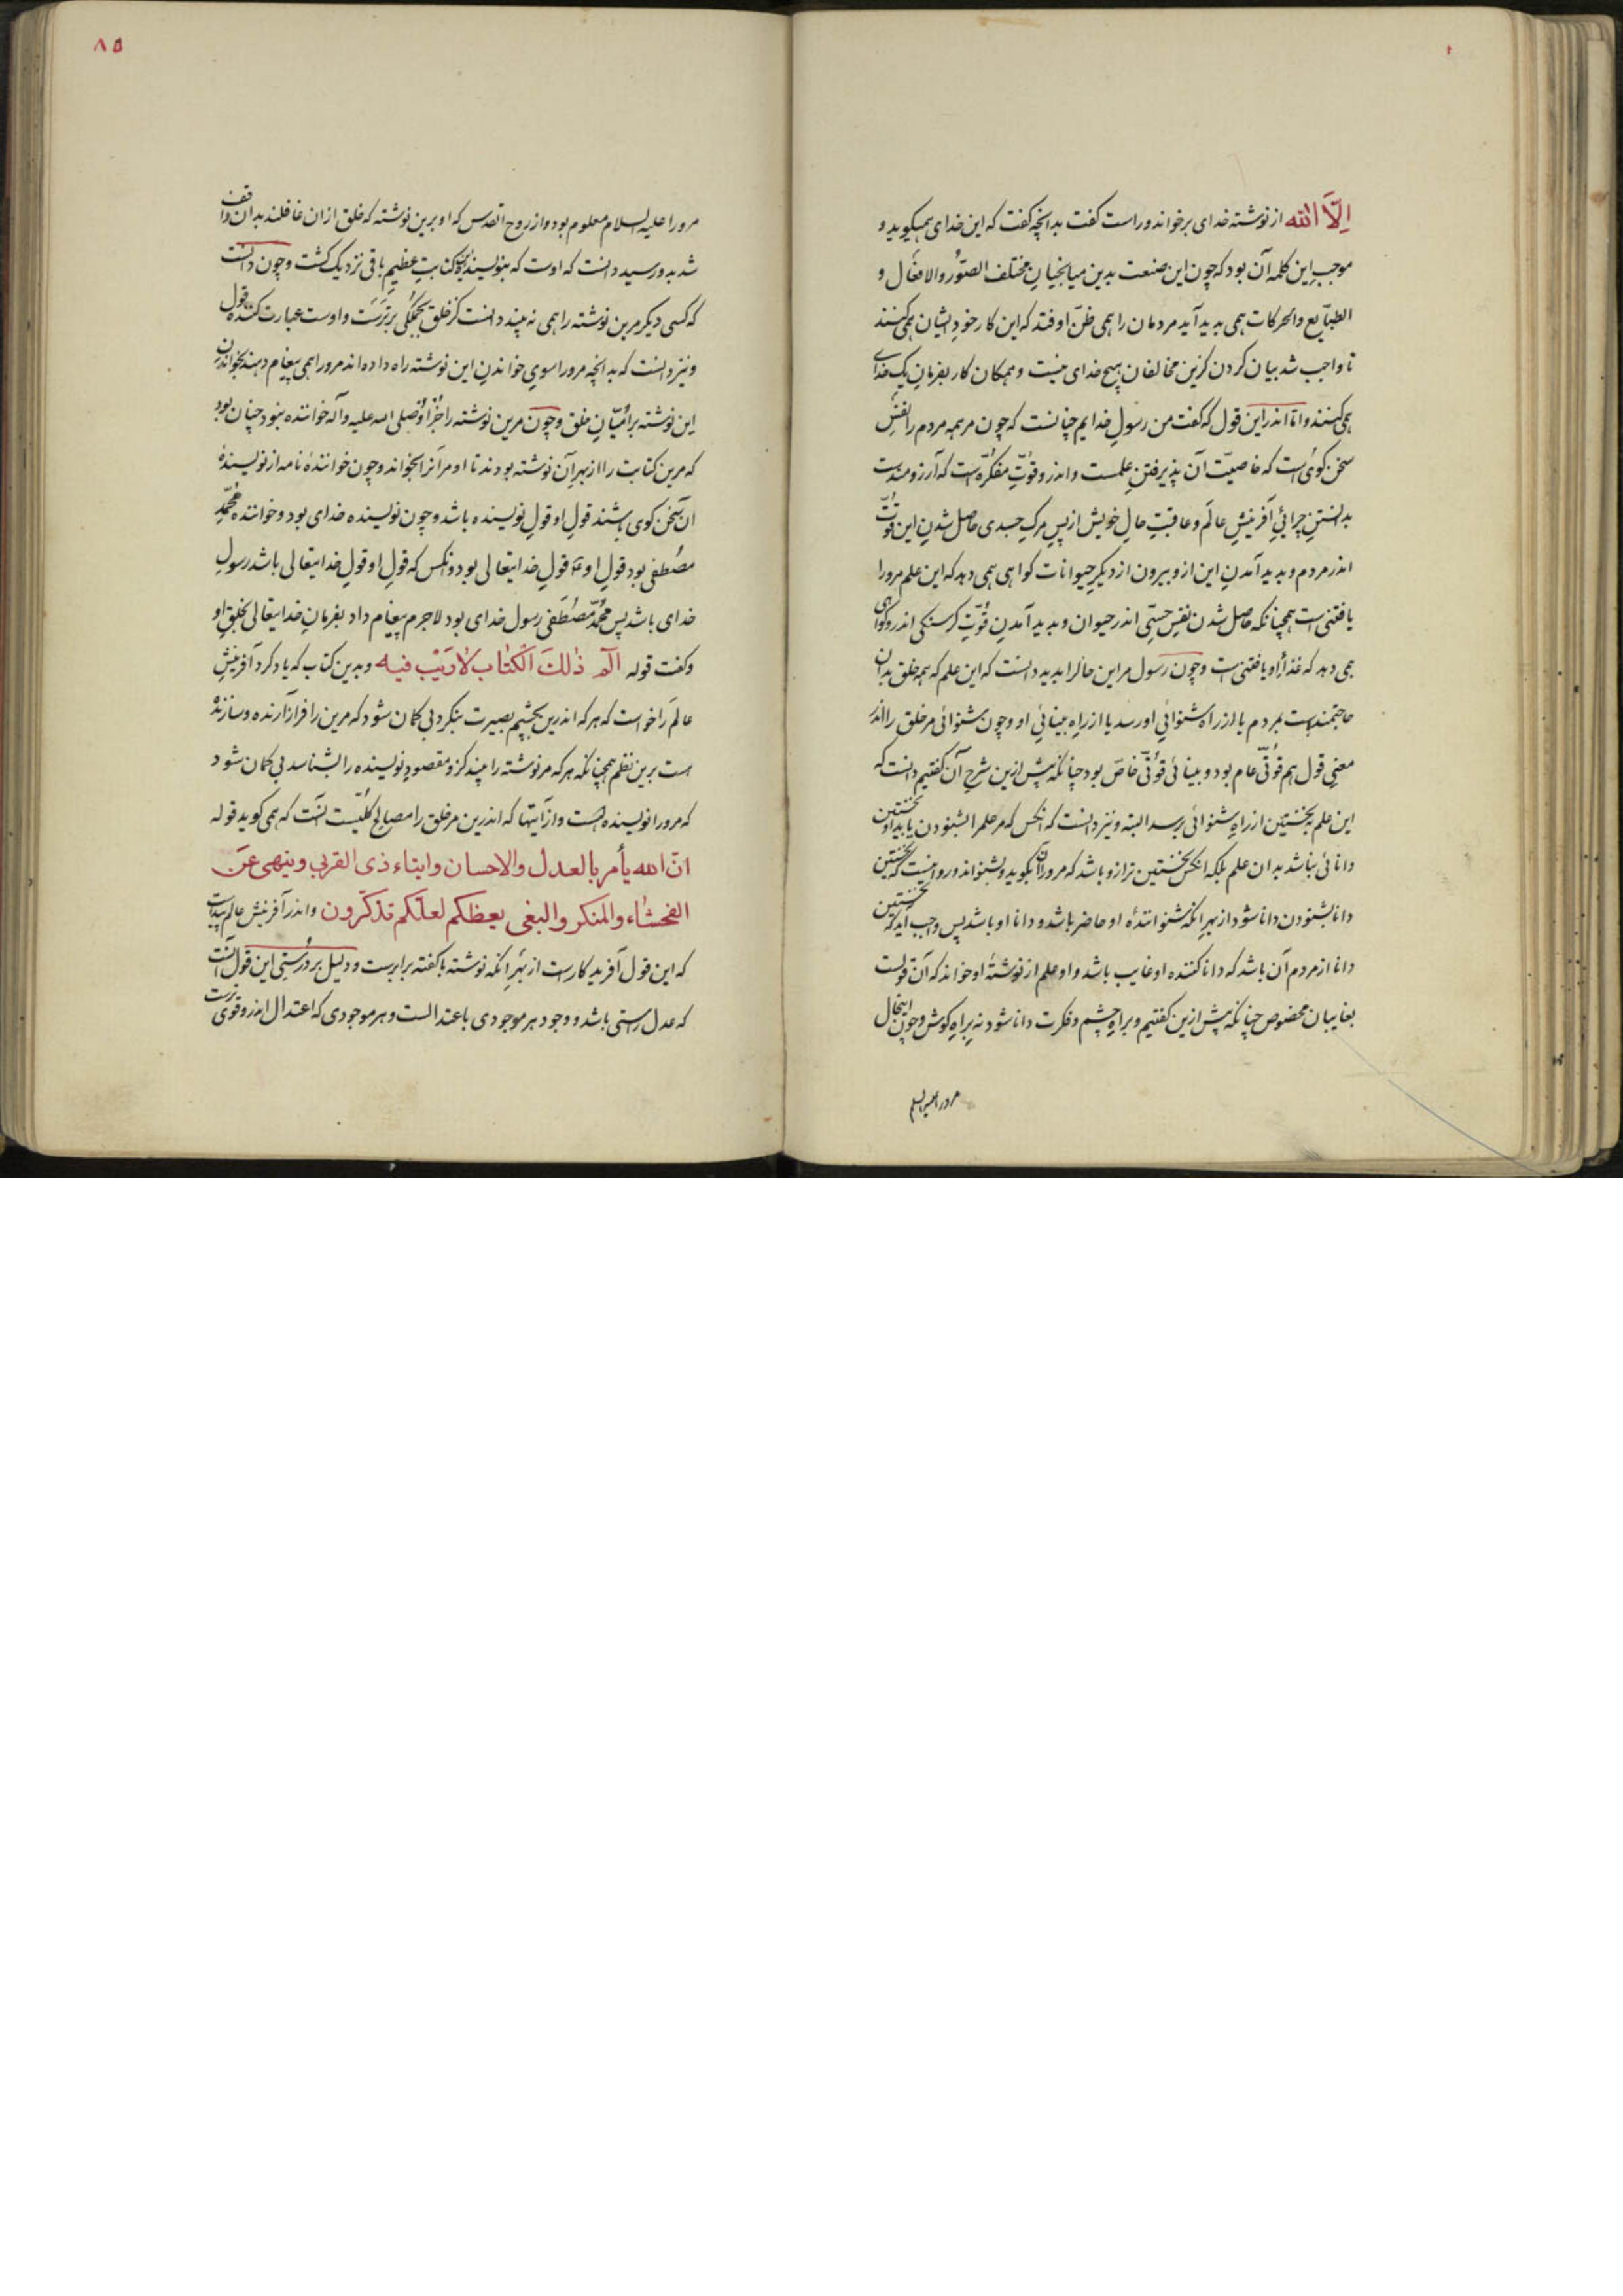 اِلّا الله از نوشته خدای برخواند و راست گفت بدانچه گفت که این خدای همیکوید و
موجب این کلمه آن بود که چون این صنعت بدین میانجیانِ مختلف الصّور والافعال و
الطبایع والحرکات همی پدید آید مردمان را همی ظنّ اوفتد که این کار خود ایشان همی کنند
تا واجب شد بیان کردن کزین مخالفان هیچ خدای نیست و همکان کار بفرمانِ یک خدای
همی کنند و امّا اندر این قول که گفت من رسولِ خدایم چنانست که چون مر همه مردم را نفسِ
سخن کوی است که خاصیّت آن پذیرفتنِ علمست و اندرو قوّتِ مفکّره است که آرزومندست
بدانستنِ چرائیِ آفرینشِ عالم و عاقبتِ حالِ خویش از پسِ مرکِ جسدی حاصل شدنِ این قوّت
اندر مردم و پدید آمدنِ این ازو بیرون از دیکر حیوانات کواهی همی دهد که این علم مرورا
یافتنی است همچنانکه حاصل شدن نفسِ حسّی اندر حیوان و پدید آمدنِ قوّتِ کرسنکی اندرو کواهی
همی دهد که غذا او را یافتنی است و چون رسول مر این حال را بدید دانست که این علم که همه خلق بدان
حاجتمندست بمردم یا از راه شنوائیِ او رسد یا از راهِ بینائیِ او و چون شنوائی مر خلق را اندر
معنیِ قول هم قوّتی عام بود و بینائی قوّتی خاصّ بود چنانکه پیش ازین شرحِ آن کفتیم دانست که
این علم بنخستین از راهِ شنوائی نرسد البته و نیز دانست که انکس که مر علم را بشنودن یابد او نخستین
دانائی نباشد بدان علم بلکه انکس نخستین ترازو باشد که مرورا آن بکوید و بشنواند و روا نیست که نخستین
دانا بشنودن دانا شود از بهرِ انکه شنوانندهٔ او حاضر باشد و دانا او باشد پس واجب آید که نخستین
دانا از مردم آن باشد که دانا کننده او غایب باشد و او علم از نوشتهٔ او خواند که آن قولست
بغایبان مخصوص چنانکه پیش ازین کفتیم و براهِ چشم و فکرت دانا شود نه براهِ کوش و چون اینحال
مرورا علیه السلم
۸۵
مرورا علیه السلام معلوم بود و از روح القدس که او برین نوشته که خلق از ان غافلند بدان واقف
شد بدو رسید دانست که اوست که بنویسندهٔ این کتابتِ عظیمِ باقی نزدیک کشت و چون دانست
که کسی دیکر مرین نوشته را همی نه بیند دانست کز خلق بجملکی برترست و اوست عبارت کننده قول
و نیز دانست که بدانچه مرورا سویِ خواندنِ این نوشته راه داده اند مرورا همی پیغام دهند بخواندنِ
این نوشته بر امّیّانِ خلق و چون مرین نوشته را جز او صلی الله علیه وآله خواننده نبود چنان بود
که مرین کتابت را از بهرِ آن نوشته بودند تا او مر آنرا بخواند و چون خوانندهٔ نامه از نویسندهٔ
آن سخن کوی باشند قولِ او قولِ نویسنده باشد و چون نویسنده خدای بود و خواننده محمّدِ
مصطفی بود قولِ او قولِ خدایتعالی بود و انکس که قولِ او قولِ خدایتعالی باشد رسولِ
خدای باشد پس محمّد مصطفی رسول خدای بود لاجرم پیغام داد بفرمانِ خدایتعالی بخلقِ او
و کفت قوله الٓم ذٰلک الکتاب لا ریب فیه و بدین کتاب که یاد کرد آفرینشِ
عالم را خواست که هر که اندرین بچشمِ بصیرت بنکرد بی کمان شود که مرین را فراز آرنده و سازنده
هست برین نظم همچنانکه هر که مر نوشته را ببیند کزو مقصودِ نویسنده را بشناسد بی کمان شود
که مرورا نویسنده هست و از آیتها که اندرین مر خلق را مصالحِ کلّیست آنست که همی کوید قوله
انّ الله یأمر بالعدل والاحسان وایتاء ذی القربی وینهی عن
الفحشاء والمنکر والبغی یعظکم لعلّکم تذکّرون و اندر آفرینش عالم پیداست
که این قول آفرید کارست از بهرِ انکه نوشته با کفته برابرست و دلیل بر درستیِ این قول آنست
که عدل راستی باشد و وجود هر موجودی باعتدالست و هر موجودی که اعتدال اندرو قوی ترست